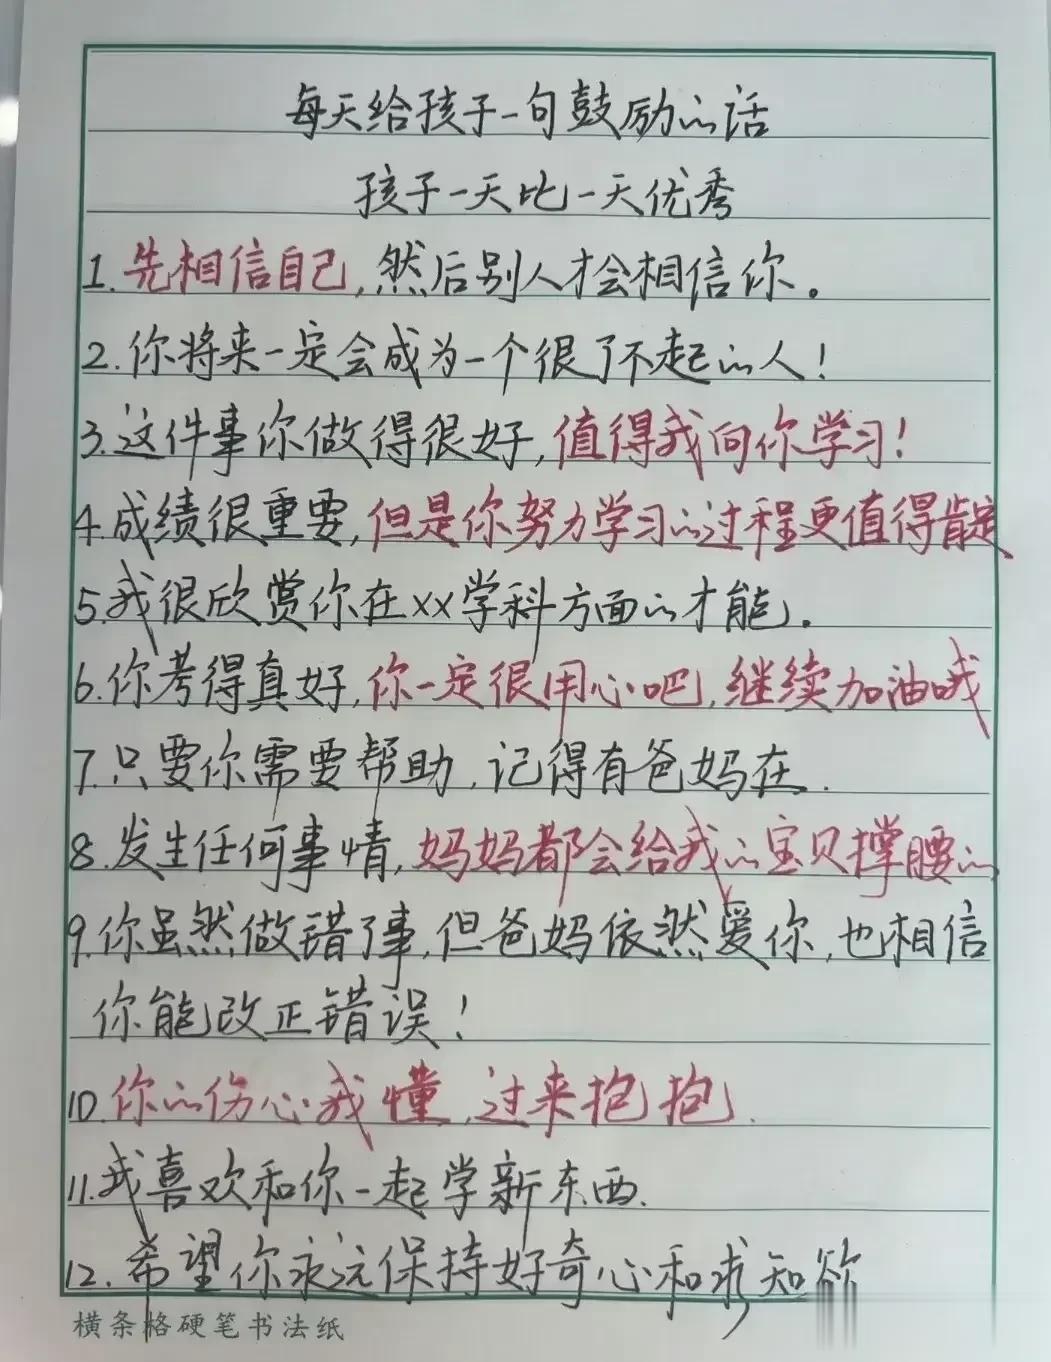 每天给孩子一句鼓励的话
孩子一天比一天优秀
1.先相信自己,然后别人才会相信你。
2.你将来一定会成为一个很了不起的人!
3.这件事你做得很好,值得我向你学习!
4.成绩很重要,但是你努力学习的过程更值得肯定
5.我很欣赏你在xx学科方面的才能.
6.你考得真好,你一定很用心吧,继续加油哦
7.只要你需要帮助,记得有爸妈在.
8.发生任何事情,妈妈都会给我的宝贝撑腰的,
9.你虽然做错了事,但爸妈依然爱你,也相信
你能改正错误!
10.你的伤心我懂,过来抱抱.
11.我喜欢和你一起学新东西.
12.希望你永远保持好奇心和求知欲
横条格硬笔书法纸